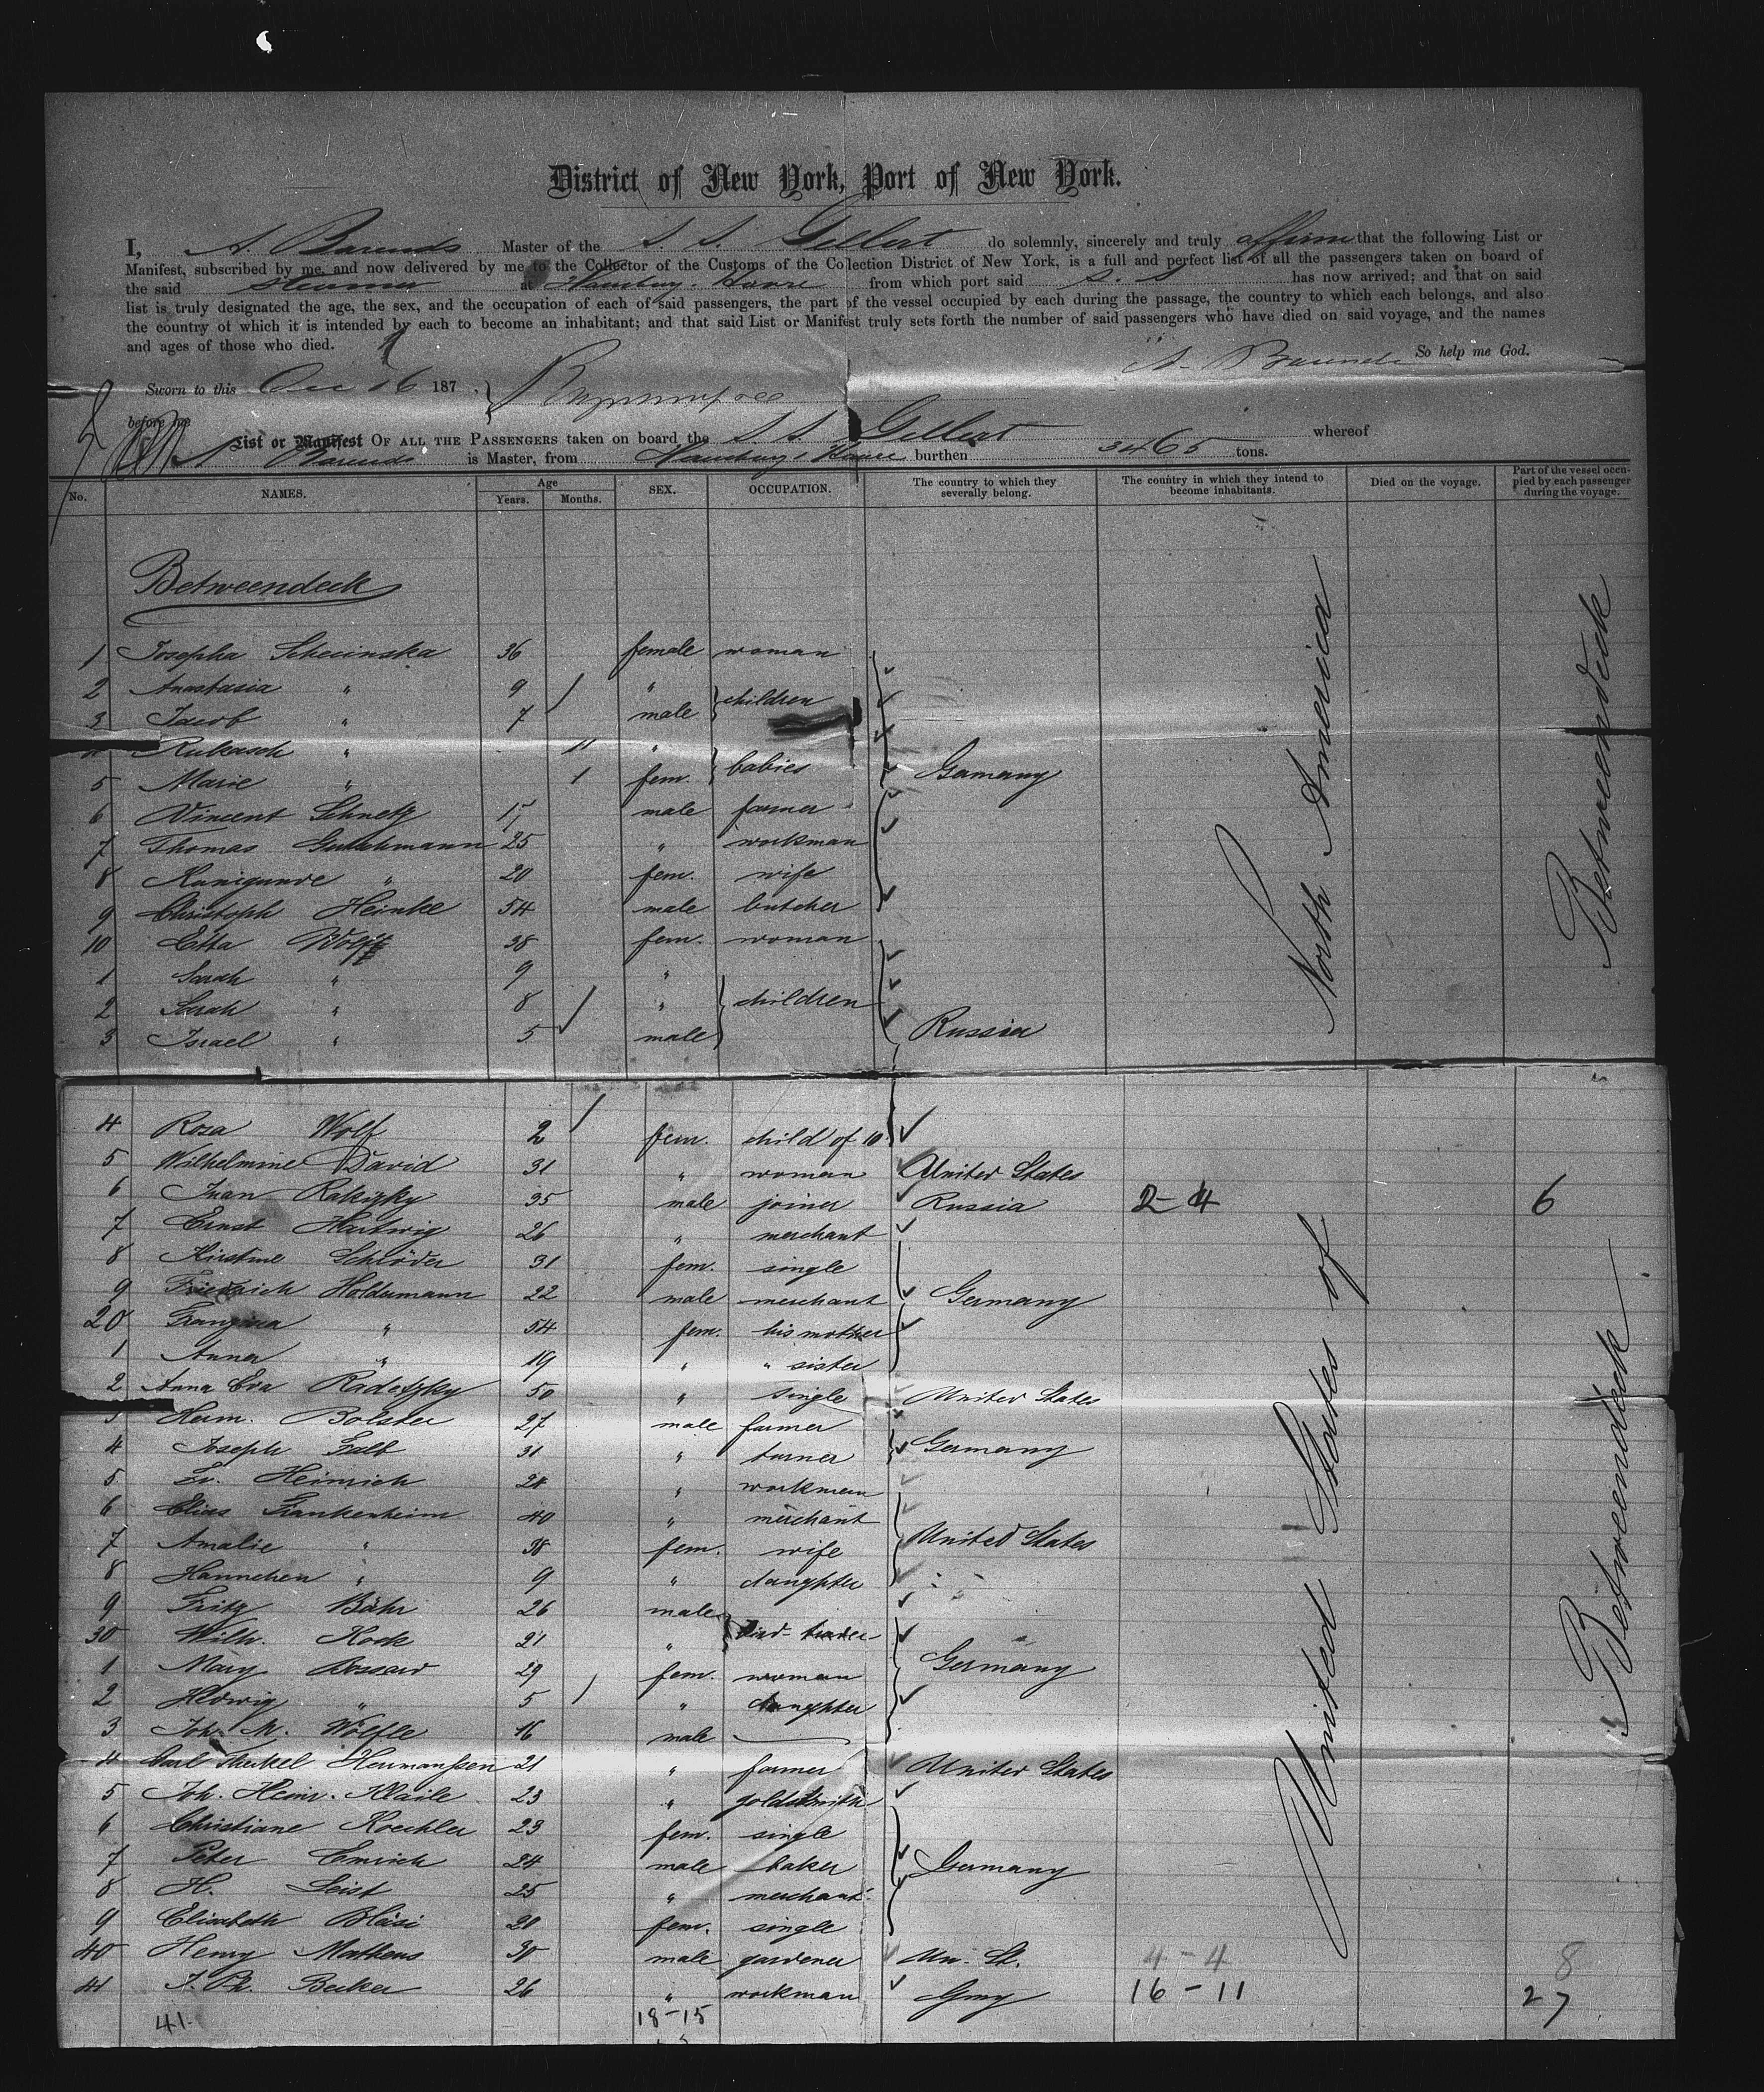 District of New York, Port of New York.
I, A. Barends Master of the S. S. Gellert do solemnly, sincerely and truly affirm that the following List or
Manifest, subscribed by me, and now delivered by me to the Collector of the Customs of the Collection District of New York, is a full and perfect list of all the passengers taken on board of
the said Steamer at Hamburg. Havre from which port said S. S has now arrived; and that on said
list is truly designated the age, the sex, and the occupation of each of said passengers, the part of the vessel occupied by each during the passage, the country to which each belongs, and also
the country of which it is intended by each to become an inhabitant; and that said List or Manifest truly sets forth the number of said passengers who have died on said voyage, and the names
and ages of those who died.
A. Barends So help me God.
Sworn to this Dec 16 187
before me
List or Manifest OF ALL THE PASSENGERS taken on board the S. S. Gellert whereof
A Barends is Master, from Hamburg & Havre burthen 3465 tons.
No. NAMES. Age Years. Months. SEX. OCCUPATION. The country to which they severally belong. The country in which they intend to become inhabitants. Died on the voyage. Part of the vessel occupied by each passenger during the voyage.
Betweendeck
1 Josepha 36 female woman
2 Anastasia " 9 " children
3 Jacob " 7 male
4 " 11 " babies
5 Marie " 1 fem. Gamany
6 Vincent male farmer
7 Thomas 25 " workman
8 Kunigunde " 20 fem. wife
9 Christoph Heinke 54 male butcher
10 Etta Wolff 38 fem. woman
1 Sarah " 9 "
2 Sarah " 8 " children
3 Israel " 5 male Russia
North America
Betweendeck
4 Rosa Wolf 2 fem. child of 10
5 Wilhelmine David 31 " woman United States
6 Ivan 35 male joiner Russia 2-4 6
7 Ernst Hartwig 26 " merchant
8 Kirstine Schlöder 31 fem. single
9 Friedrich Holdermann 22 male merchant Germany
20 " 54 fem. his mother
1 Anna " 19 " " sister
2 Anna Eva Radetzky 50 " single United States
3 Herm. Bolster 27 male farmer
4 Joseph Falb 31 " turner Germany
5 Fr. Heinrich 24 " workman
6 Elias Frankenheim 40 " merchant
7 Amalie " 38 fem. wife United States
8 Hannchen " 9 " daughter
9 Fritz Bähr 26 male
30 Wilh. Kock 21 "
1 Mary Bossard 29 fem. woman Germany
2 Hedwig " 5 " daughter
3 Joh. M. Wölfle 16 male
4 Carl Hermanssen 21 " farmer United States
5 Joh. Heinr. Klaile 23 " goldsmith
6 Christiane Koechler 23 fem. single
7 Peter Emrich 24 male baker Germany
8 H. Leist 25 " merchant
9 Elisabeth Bläsi 20 fem. single
40 Henry Matheus 30 male gardener Un. St. 4-4 8
41 J. Ph. Becker 26 " workman Gmy 16-11 27
41. 18-15
United States of
Betweendeck